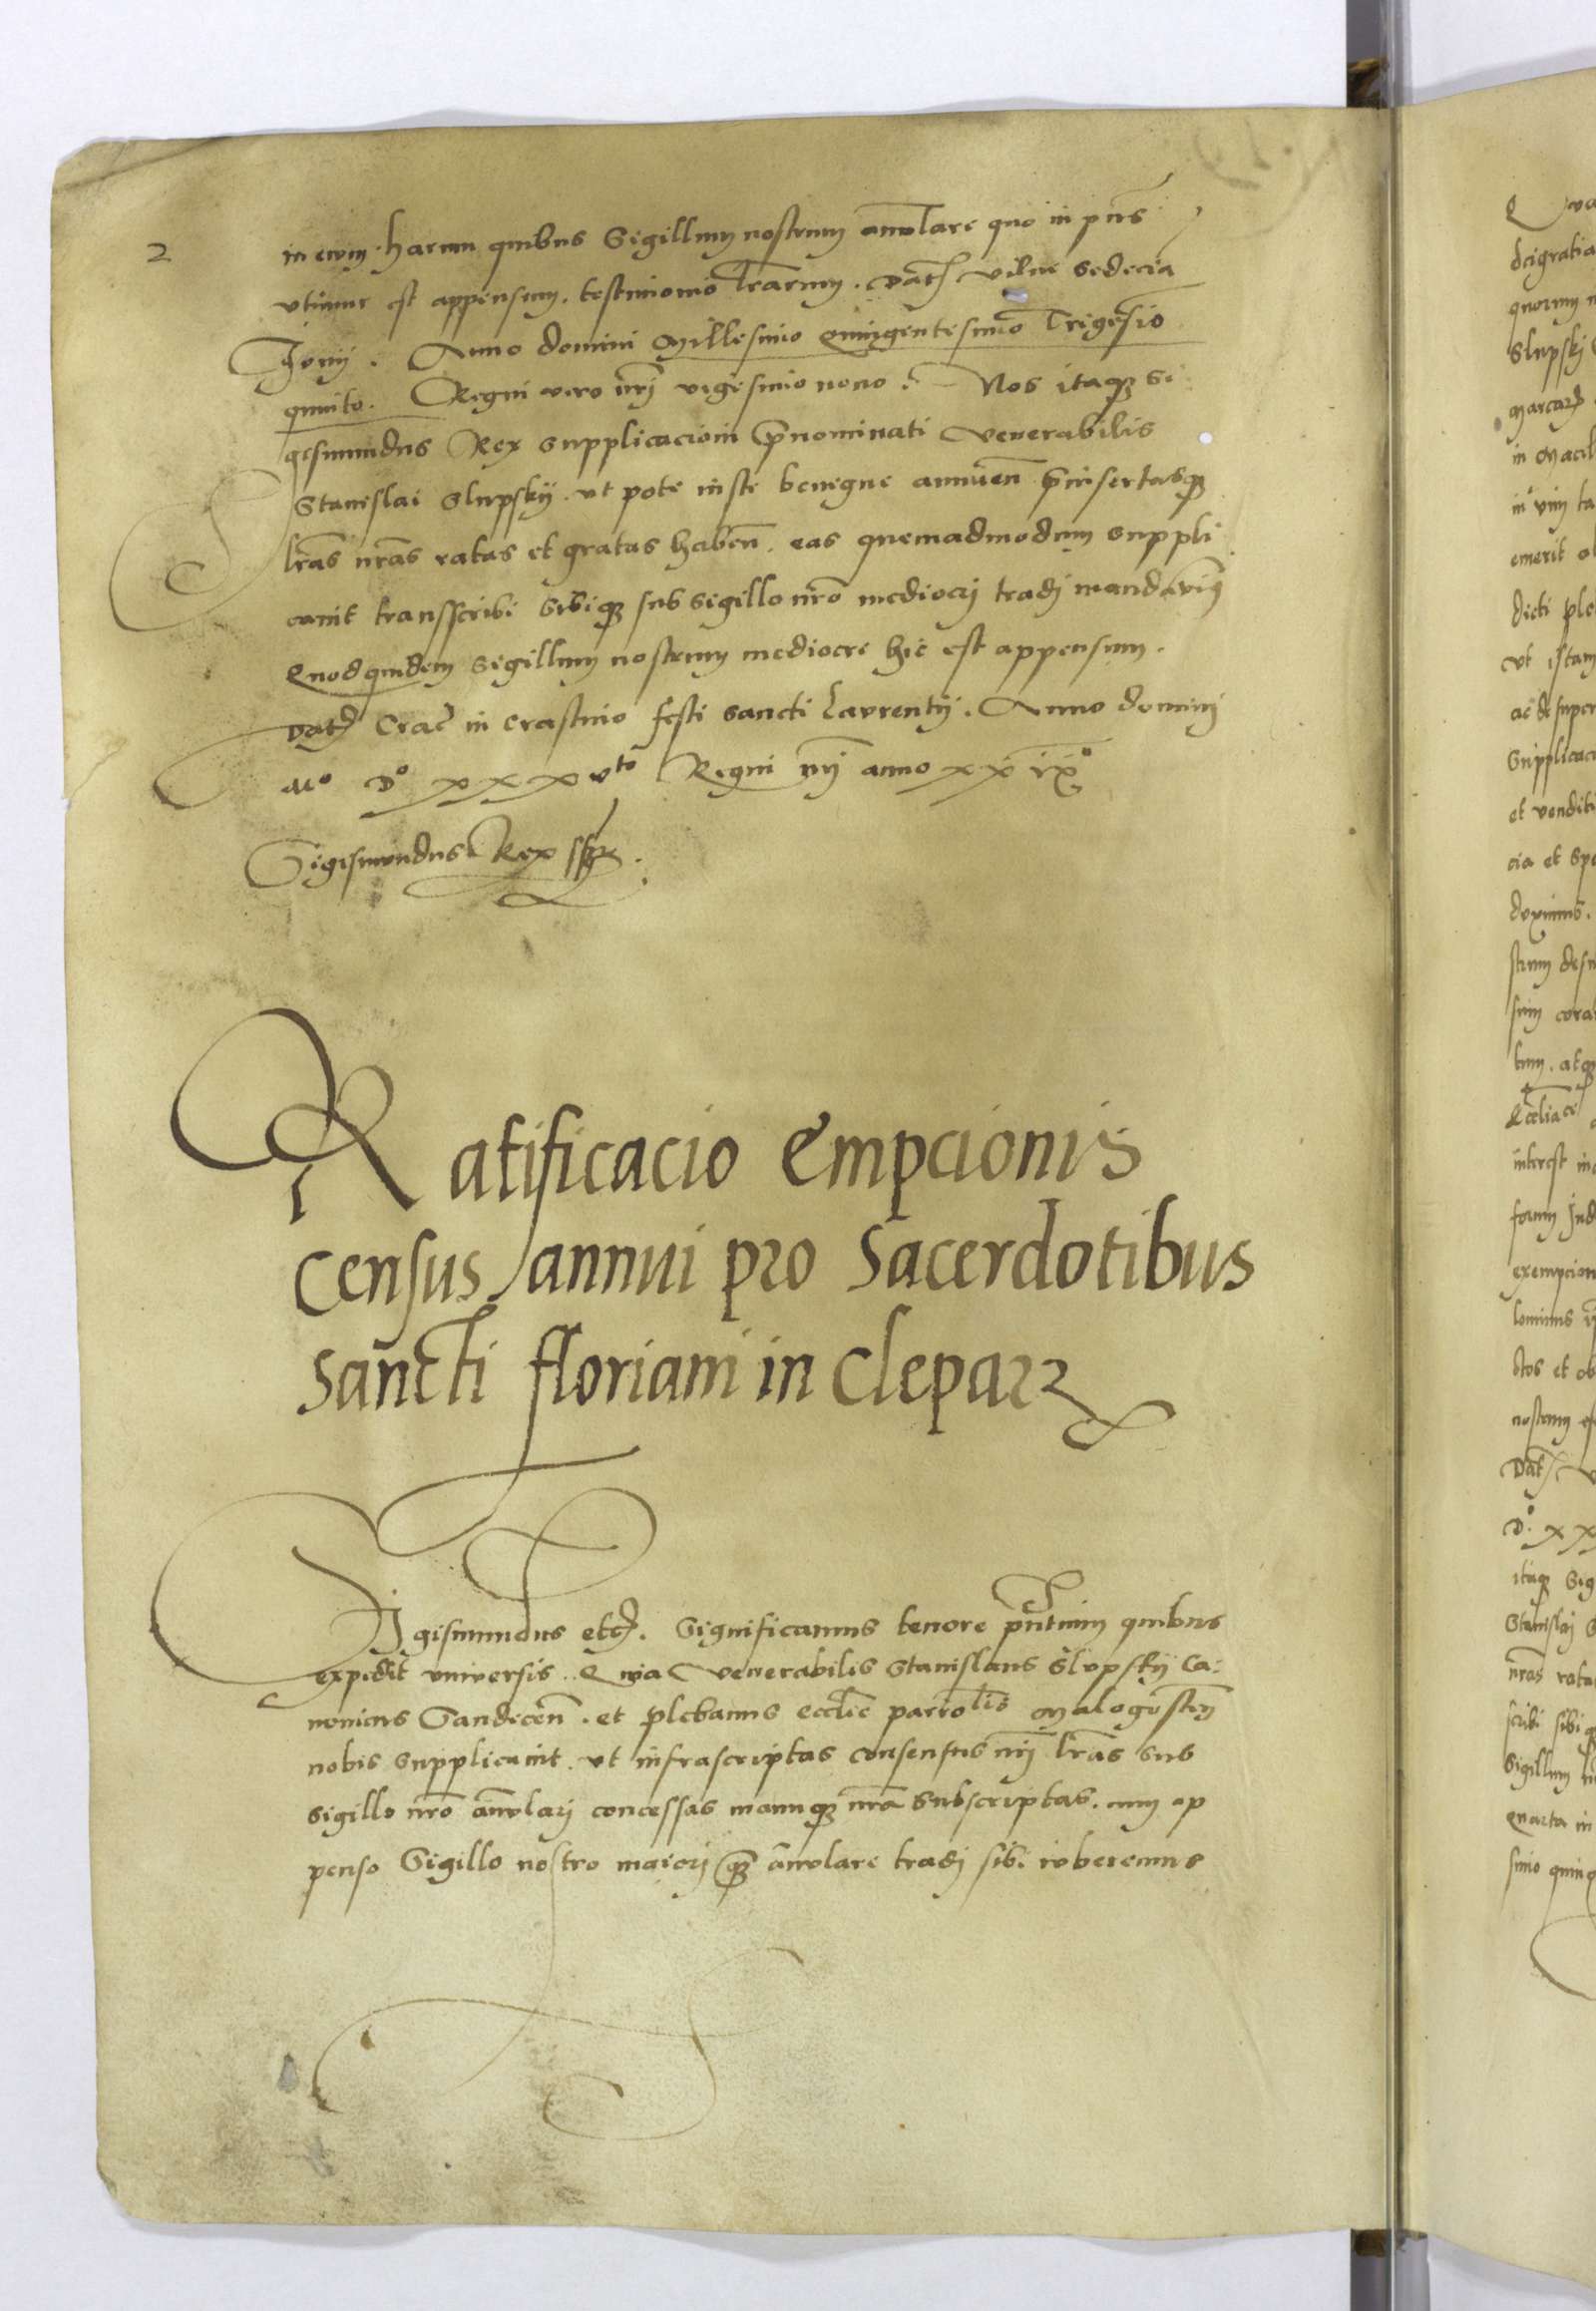 2
in ewm. harum quibus Sigillum nostrum anulare quo in pñs
vtimur est appensum. testimonio lrarum. Dat Vilne sedecia
Junij. Anno domini Millesimo Quingentesimo Trigesio
quinto. Regni vero nrj vigesimo nono. Nos itaq Si
gesmundus Rex supplicacioni prenominati Venerabilis
Stanislai Slupskij. vt pote iuste benigne annuen preinsertasq
lras nras ratas et gratas haben. eas quemadmodum suppli
cauit transscribi sibiq sub sigillo nro mediocrj tradj mandauimus
Quodquidem sigillum nostrum mediocre hic est appensum.
Dat Crac in crastino festi sancti Laurentij. Anno dominj
Mº Dº xxxvto Regni nrj anno xxixº
Sigismundus Rex sspt.
Ratificacio Empcionis
census annui pro Sacerdotibus
Sancti floriani in Clepar
Sigismundus etc. Significamus tenore pntium quibus
expedit vniuersis. Quia Venerabilis Stanislaus Slupskij Ca:
nonicus Sandecen. et plebanus ecclie parrolis Malogosten
nobis supplicauit. vt infrascriptas consensus nrj lras sub
sigillo nro anularj concessas manuq nra subscriptas. cum ap
penso Sigillo nostro maiorj quam anulare tradj sibi iuberemus
Qua
dei gratia
quorum
Slupskj
Marcar
in
in vim
emerit
dicti ple
vt istam
ac de super
Supplicac
et venditi
cia et spe
duximus.
strum
sum cora
tum. atq
interest in
forum Jud
exempcion
nostrum
Dat
Dº. xx
itaq Sig
Stanislaj S
nras rata
scribi sibiq
Sigillum
Quarta in
simo quinq